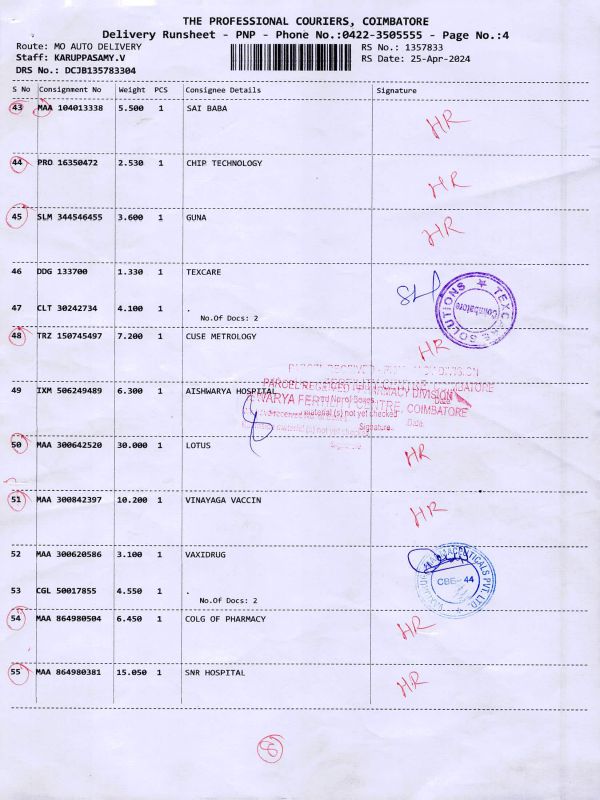 THE PROFESSIONAL COURIERS, COIMBATORE
Delivery Runsheet - PNP - Phone No.:0422-3505555 - Page No.:4
Route: MO AUTO DELIVERY RS No.: 1357833
Staff: KARUPPASAMY.V RS Date: 25-Apr-2024
DRS No.: DCJB135783304
S No Consignment No Weight PCS Consignee Details Signature
43 MAA 104013338 5.500 1 SAI BABA HR
44 PRO 16350472 2.530 1 CHIP TECHNOLOGY HR
45 SLM 344546455 3.600 1 GUNA HR
46 DDG 133700 1.330 1 TEXCARE
TEXCARE SOLUTIONS Coimbatore
47 CLT 30242734 4.100 1 .
No.Of Docs: 2
48 TRZ 150745497 7.200 1 CUSE METROLOGY HR
49 IXM 506249489 6.300 1 AISHWARYA HOSPITAL
PARCEL RECEIVED PHARMACY DIVISION
COIMBATORE
material (s) not yet checked
Signature Date
50 MAA 300642520 30.000 1 LOTUS HR
51 MAA 300842397 10.200 1 VINAYAGA VACCIN HR
52 MAA 300620586 3.100 1 VAXIDRUG
CBE-44
PVT. LTD.
53 CGL 50017855 4.550 1 .
No.Of Docs: 2
54 MAA 864980504 6.450 1 COLG OF PHARMACY HR
55 MAA 864980381 15.050 1 SNR HOSPITAL HR
8